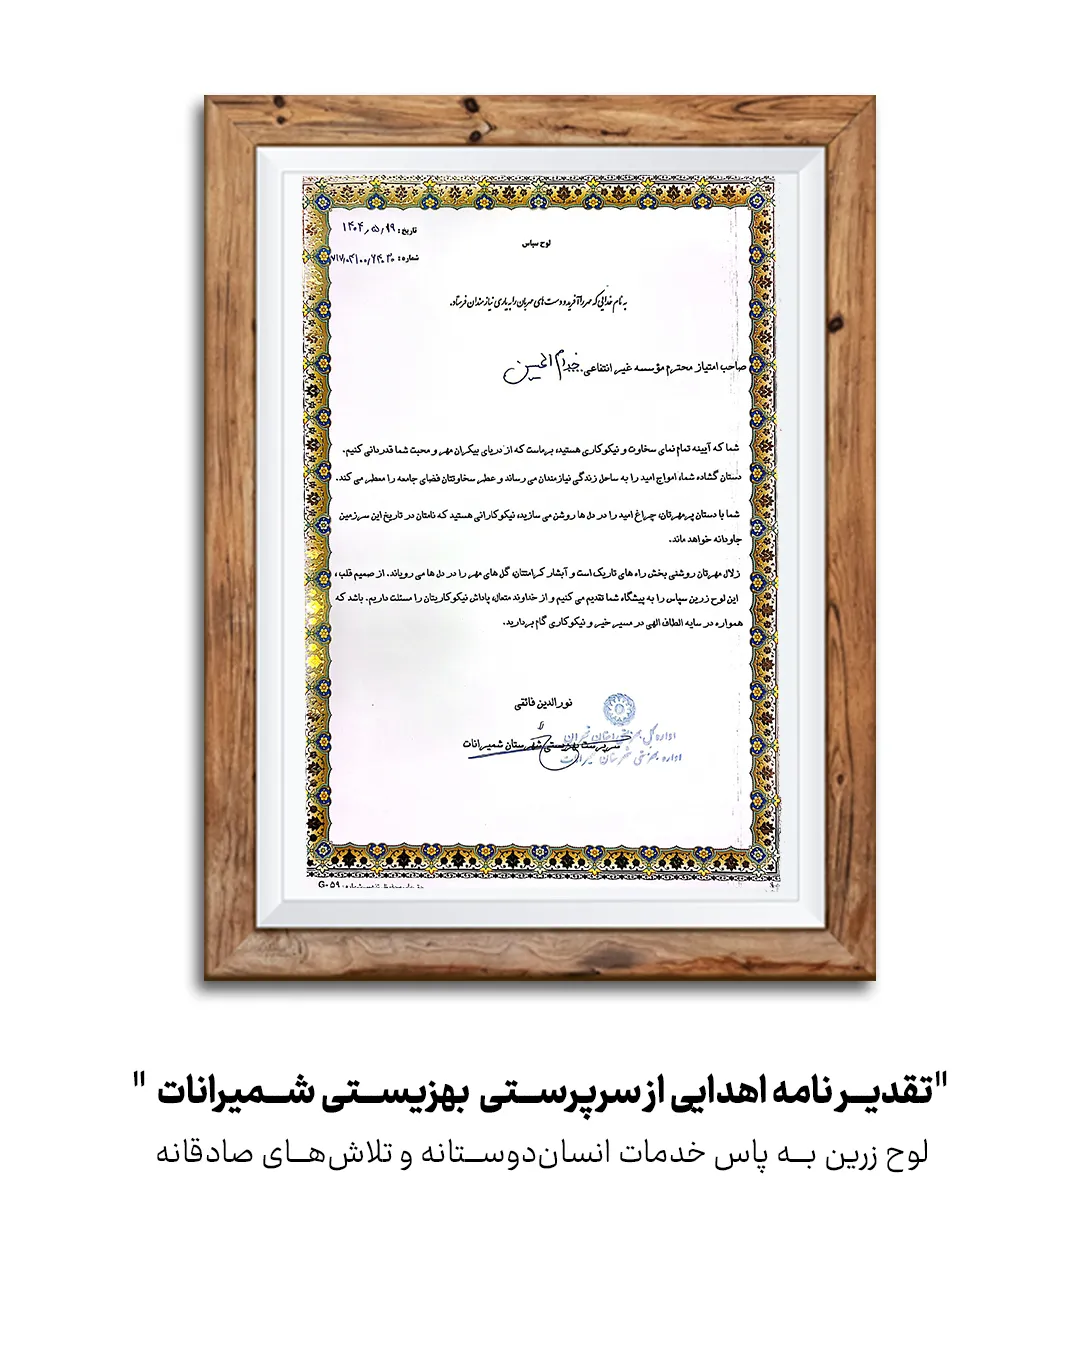 تاریخ: ۱۴۰۴/۵/۱۹
شماره:
لوح سپاس
به نام خدایی که مهر را آفرید و دست های مهربان را به یاری نیازمندان فرستاد.
صاحب امتیاز محترم مؤسسه غیر انتفاعی. خدام الحسین
شما که آیینه تمام نمای سخاوت و نیکوکاری هستید، برماست که از دریای بیکران مهر و محبت شما قدردانی کنیم.
دستان گشاده شما، امواج امید را به ساحل زندگی نیازمندان می رساند و عطر سخاوتتان فضای جامعه را معطر می کند.
شما با دستان پر مهرتان، چراغ امید را در دل ها روشن می سازید، نیکوکارانی هستید که نامتان در تاریخ این سرزمین
جاودانه خواهد ماند.
زلال مهرتان روشنی بخش راه های تاریک است و آبشار کرامتتان، گل های مهر را در دل ها می رویاند. از صمیم قلب،
این لوح زرین سپاس را به پیشگاه شما تقدیم می کنیم و از خداوند متعال، پاداش نیکوکاریتان را مسئلت داریم. باشد که
همواره در سایه الطاف الهی در مسیر خیر و نیکوکاری گام بردارید.
نورالدین فائقی
سرپرست بهزیستی شهرستان شمیرانات
اداره کل بهزیستی استان تهران
اداره بهزیستی شهرستان شمیرانات
G-۵۹
"تقدیر نامه اهدایی از سرپرستی بهزیستی شمیرانات "
لوح زرین به پاس خدمات انسان‌دوستانه و تلاش‌های صادقانه